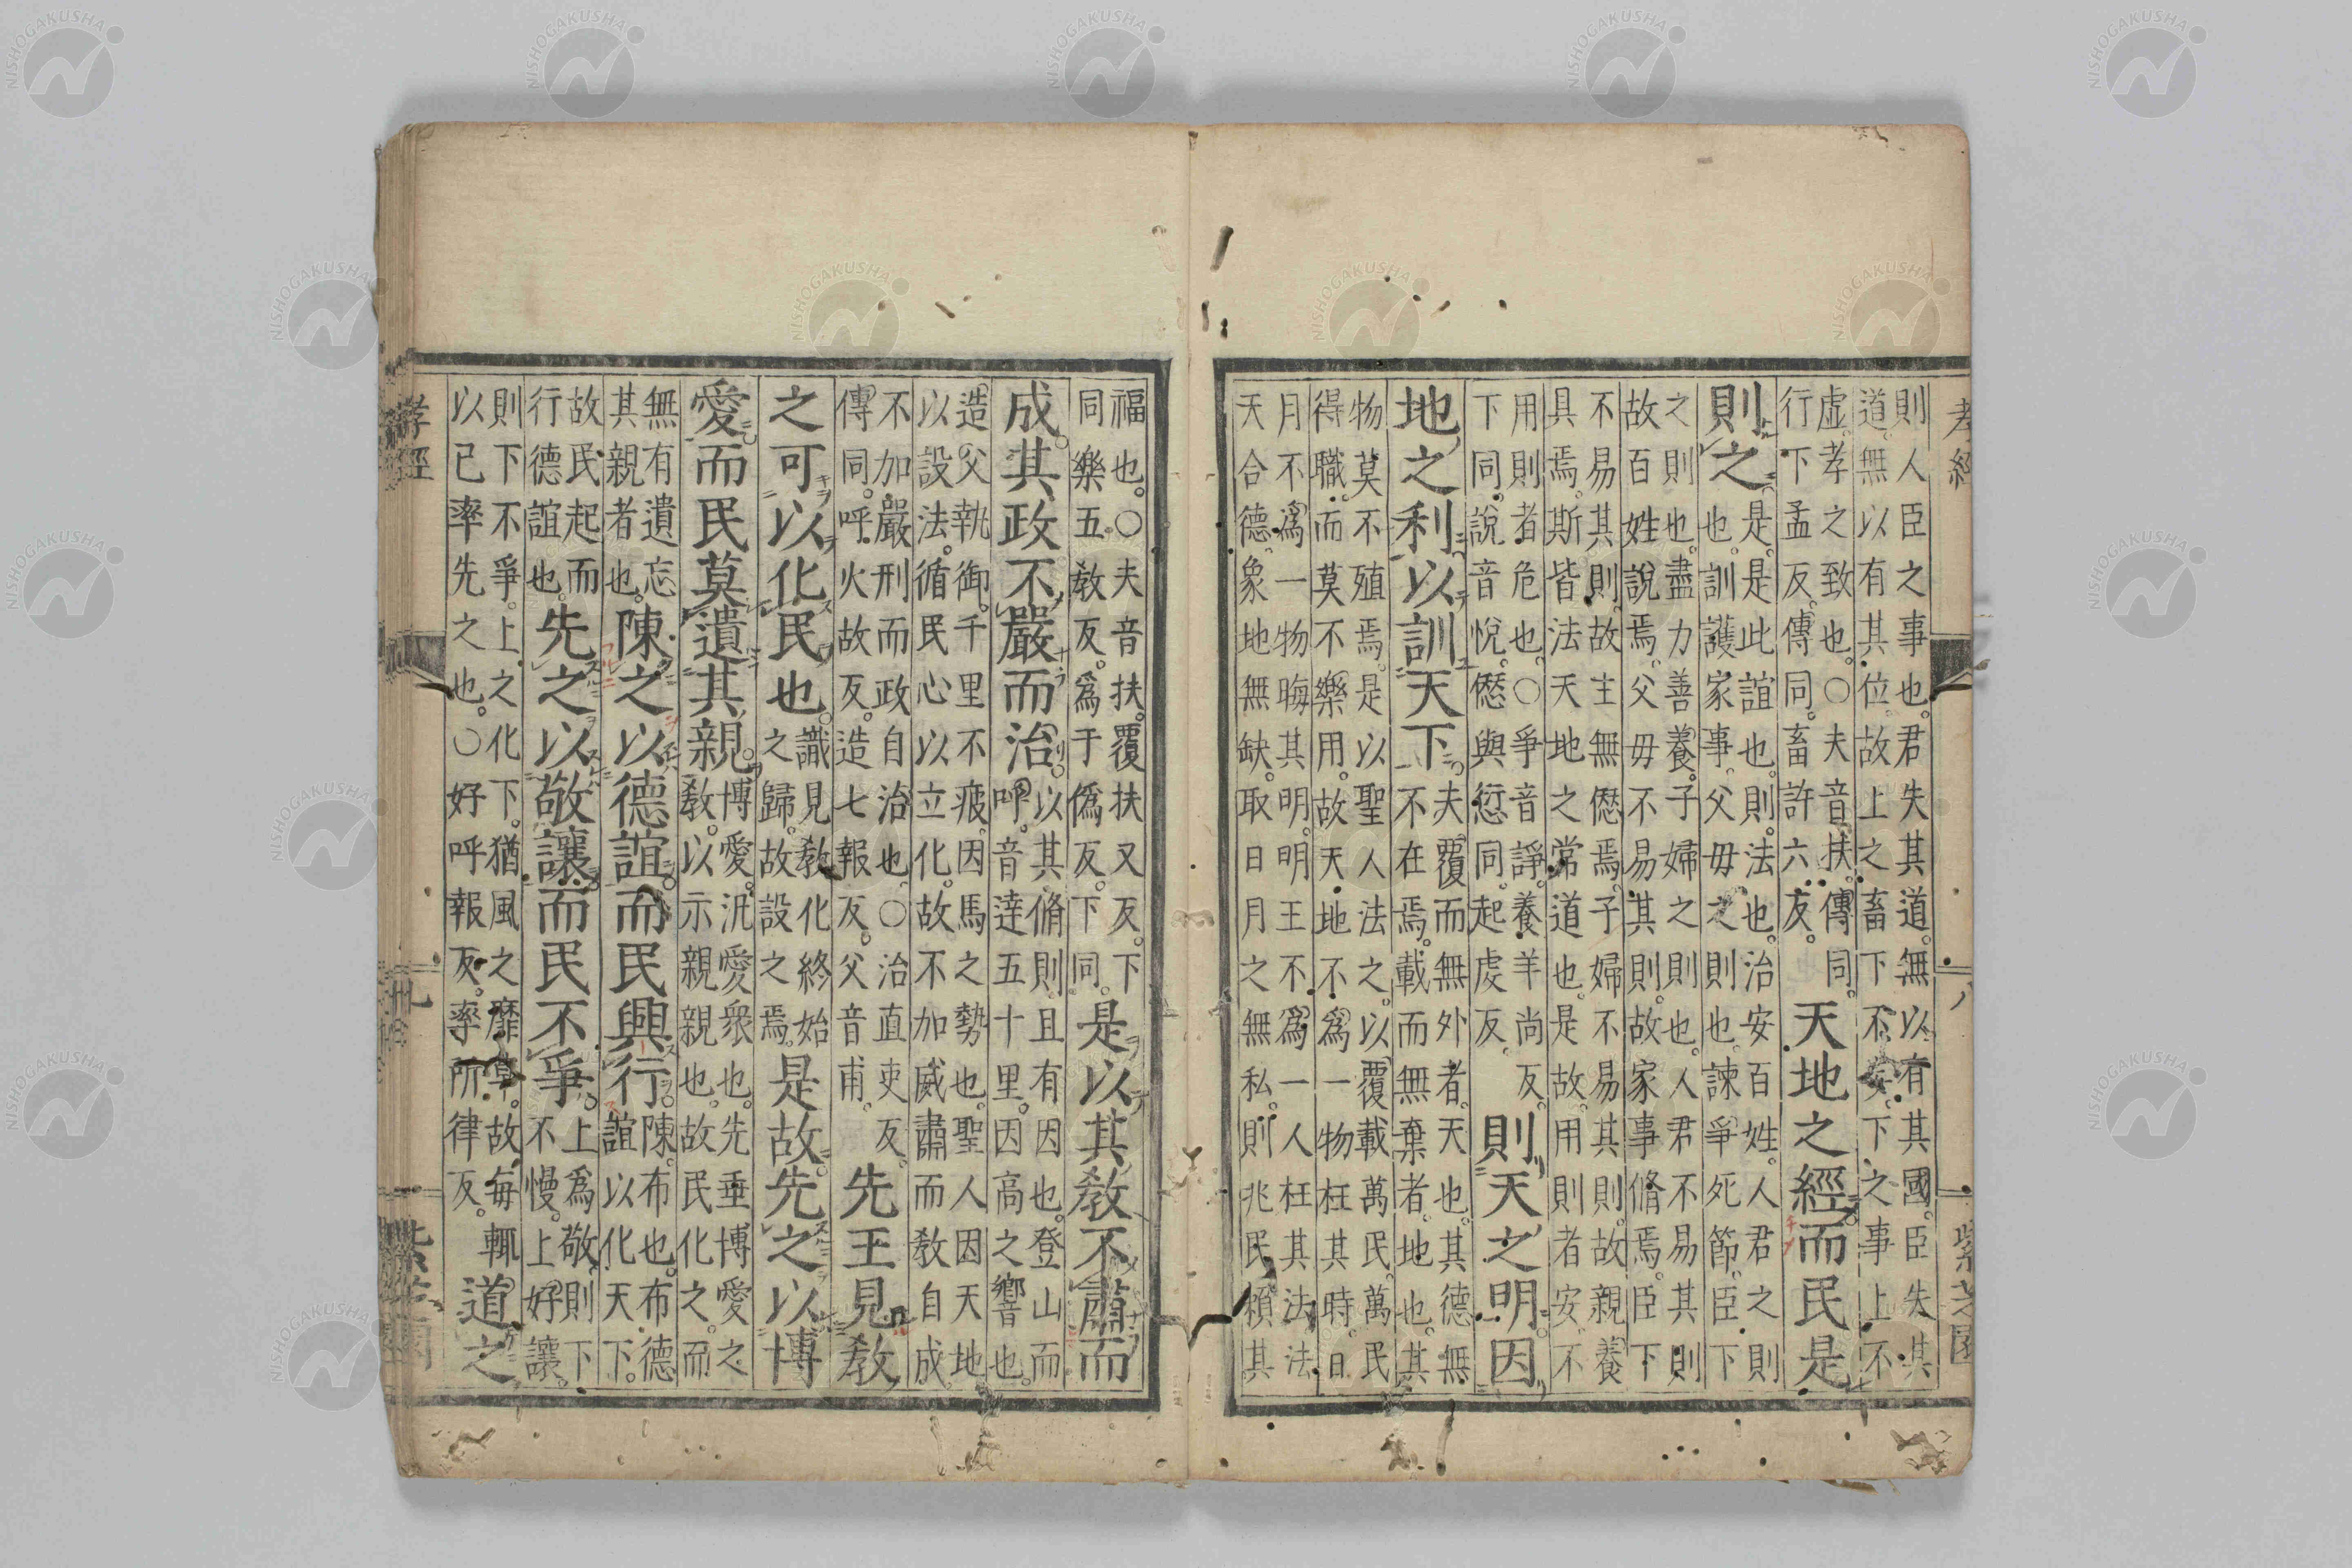 孝經 八 紫芝園
則人臣之事也。君失其道。無以有其國。臣失其
道。無以有其位。故上之畜下不妄。下之事上不
虛。孝之致也。〇夫音扶。傳同。
行下孟反。傳同。畜許六反。
天地之經而民是
則之。
是。是此誼也。則。法也。治安百姓。人君之則
也。訓護家事。父毋之則也。諫爭死節。臣下
之則也。盡力善養。子婦之則也。人君不易其則
故百姓說焉。父毋不易其則。故家事脩焉。臣下
不易其則。故主無僁焉。子婦不易其則。故親養
具焉。斯皆法天地之常道也。是故用則者安。不
用則者危也。〇爭音諍。養羊尚反。
下同。說音悅。僁與愆同。起虔反。
則天之明。因
地之利。以訓天下。
夫覆而無外者。天也。其德無
不在焉。載而無棄者。地也。其
物莫不殖焉。是以聖人法之。以覆載萬民。萬民
得職。而莫不樂用。故天地不爲一物枉其時。日
月不爲一物晦其明。明王不爲一人枉其法。法
天合德。象地無缺。取日月之無私。則兆民賴其
福也。〇夫音扶。覆扶又反。下
同。樂五教反。爲于僞反。下同。
是以其教不肅而
成。其政不嚴而治。
以其脩則且有因也。登山而
呼。音達五十里。因高之響也。
造父執御。千里不疲。因馬之勢也。聖人因天地
以設法。循民心以立化。故不加威肅而教自成
不加嚴刑而政自治也。〇治直吏反。
傳同。呼火故反。造七報反。父音甫。
先王見教
之可以化民也。
識見教化終始
之歸。故設之焉。
是故先之以博
愛。而民莫遺其親。
博愛。汎愛衆也。先垂博愛之
教。以示親親也。故民化之。而
無有遺忘
其親者也。
陳之以德誼。而民興行。
陳。布也。布德
誼以化天下。
故民起而
行德誼也。
先之以敬讓。而民不爭。
上爲敬。則下
不慢。上好讓。
則下不爭。上之化下。猶風之靡草。故每輒
以已率先之也。〇好呼報反。率所律反。
道之
孝經 九